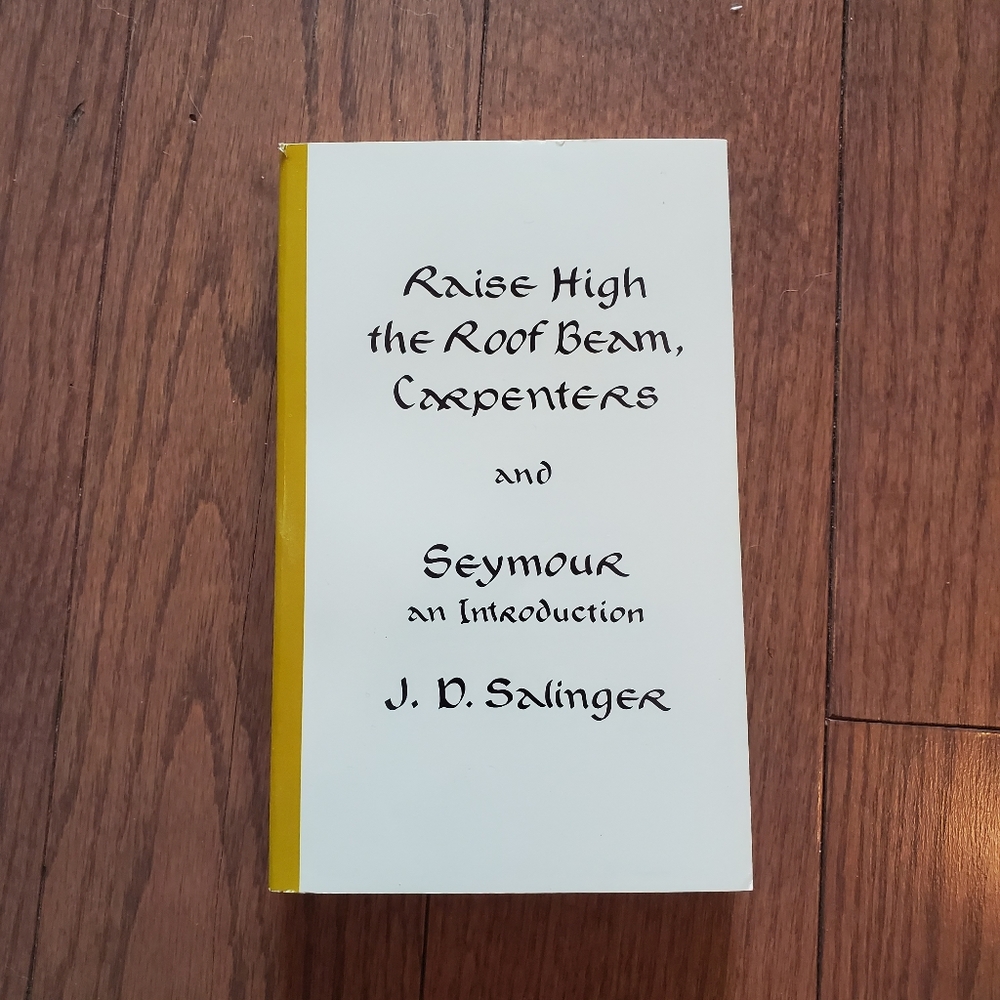 Raise High
the Roof Beam,
Carpenters
and
Seymour
an Introduction
J. D. Salinger